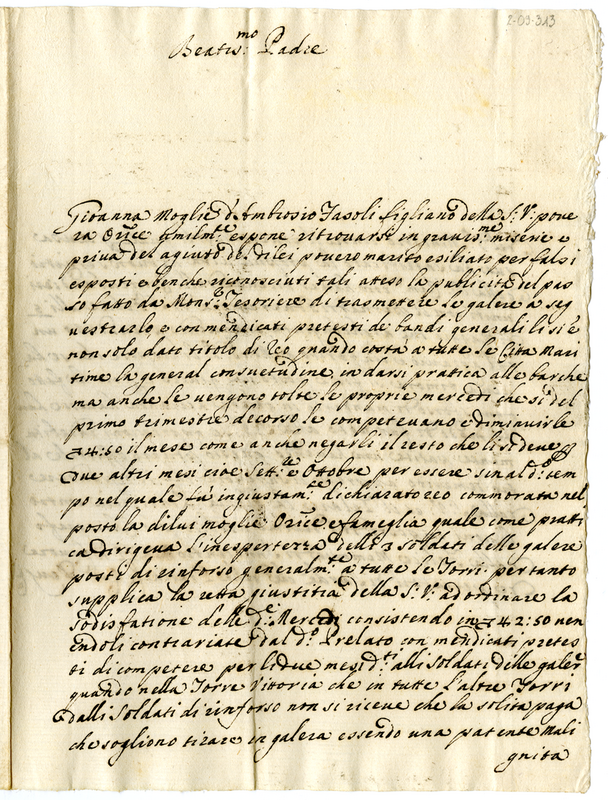 2-03-313
Beatis.mo Padre
Gioanna Moglie d'Ambrosio Fasoli figliano della S: V: pove
ra Or.ice umilm.te espone ritrovarsi in gravis.me miserie e
priva del agiuto del di lei povero marito esiliato per falsi
esposti e benche riconosciuti tali atteso la publicità del pas
so fatto da Mons.r Tesoriere di trasmettere le galere a seq
uestrarlo, e con mendicati pretesti de bandi generali li si è
non solo dato titolo di Reo quando costa a tutte le Cita Mari
time la general consuetudine in darsi pratica alle barche
ma anche le vengono tolte le proprie mercedi che si al del
primo trimestre decorso le competevano e diminuirle
4:50 il mese come anche negarli il resto che li si deve p
Due altri mesi cioe Sett.re e Ottobre per essere sin al d.o tem
po nel quale fu ingiustam.te dichiarato reo commorata nel
posto la di lui moglie Or.ice e fameglia quale come pratti
ca dirigeva l'inespertezza delli 3 soldati delle galere
posti di rinforso generalm.te a tutte le Torri: per tanto
supplica la retta giustitia della S: V: ad ordinare la
sodisfatione delle d.e Mercedi consistendo in 42:50 non
endoli contrariate dal d.o Prelato con mendicati pretes
ti di competere per li due mesi d.ti alli soldati delle galere
quando nella Torre Vittoria che in tutte l'altre Torri
dalli soldati di rinforso non si riceve che la solita paga
che sogliono tirare in galera essendo una patente mali
gnita